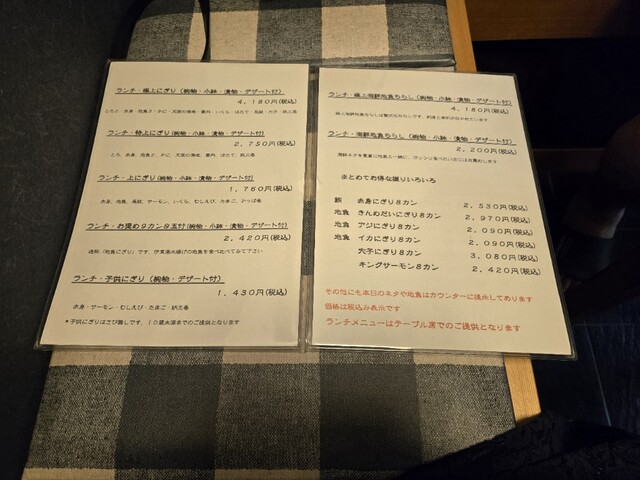 ランチ・極上にぎり(椀物・小鉢・漬物・デザート付)
4,180円(税込)
ランチ・特上にぎり(椀物・小鉢・漬物・デザート付)
2,750円(税込)
ランチ・上にぎり(椀物・小鉢・漬物・デザート付)
1,760円(税込)
赤身、地魚、烏賊、サーモン、いくら、むしえび、たまご、かっぱ巻
ランチ・お奨め9カン8五付(椀物・小鉢・漬物・デザート付)
2,420円(税込)
ランチ・子供にぎり(椀物・デザート付)
1,430円(税込)
赤身・サーモン・むしえび・たまご・鉄火巻
*子供にぎりはさび無しです、10歳未満までのご提供となります
ランチ・極上海鮮地魚ちらし(椀物・小鉢・漬物・デザート付)
4,180円(税込)
ランチ・海鮮地魚ちらし(椀物・小鉢・漬物・デザート付)
2,200円(税込)
まとめてお得な握りいろいろ
赤身にぎり8カン 2,530円(税込)
地魚 きんめだいにぎり8カン 2,970円(税込)
地魚 アジにぎり8カン 2,090円(税込)
地魚 イカにぎり8カン 2,090円(税込)
穴子にぎり8カン 3,080円(税込)
キングサーモン8カン 2,420円(税込)
その他にも本日のネタや地魚はカウンターに提示してあります
価格は税込み表示です
ランチメニューはテーブル席でのご提供となります